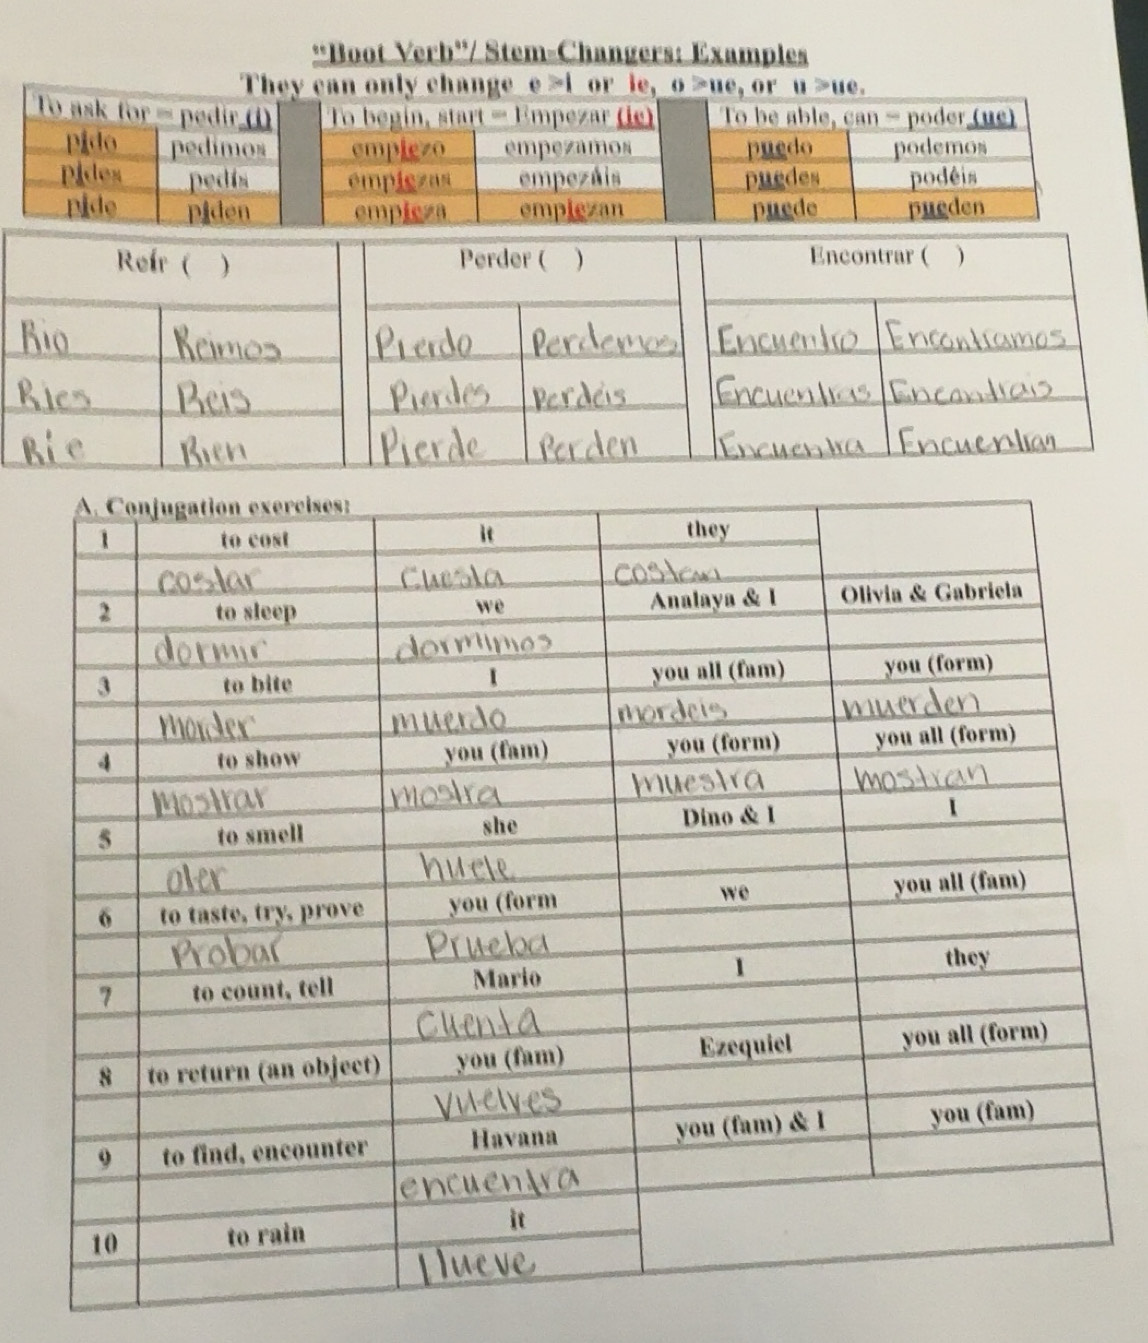 “Boot Verb”/ Stem-Changers: Examples
They can only change e >i or ie, o >ue, or u >ue.
To ask for = pedir (i) To begin, start = Empezar (ie) To be able, can = poder (ue)
pido pedimos empiezo empezamos puedo podemos
pides pedís empiezas empezáis puedes podéis
pide piden empieza empiezan puede pueden
Reír ( ) Perder ( ) Encontrar ( )
Rio Reimos Pierdo Perdemos Encuentro Encontramos
Ries Reis Pierdes Perdéis Encuentras Encontrais
Rie Rien Pierde Perden Encuentra Encuentran
A. Conjugation exercises:
1 to cost it they
costar cuesta costan
2 to sleep we Analaya & I Olivia & Gabriela
dormir dormimos
3 to bite I you all (fam) you (form)
morder muerdo mordeis muerden
4 to show you (fam) you (form) you all (form)
mostrar mostra muestra mostran
5 to smell she Dino & I I
oler huele
6 to taste, try, prove you (form we you all (fam)
Probar Prueba
7 to count, tell Mario I they
Cuenta
8 to return (an object) you (fam) Ezequiel you all (form)
vuelves
9 to find, encounter Havana you (fam) & I you (fam)
encuentra
10 to rain it
llueve